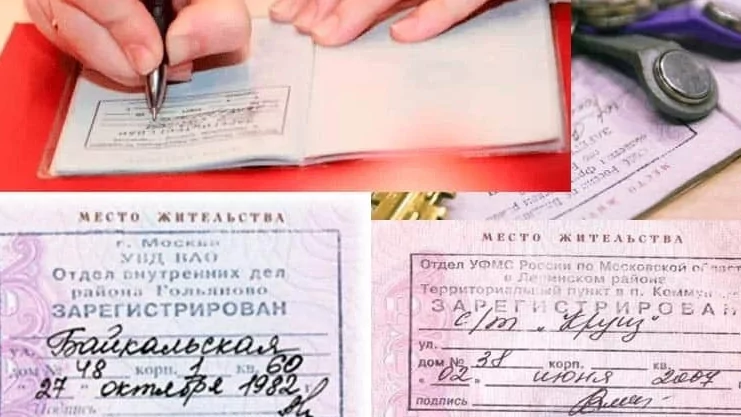 МЕСТО ЖИТЕЛЬСТВА
г. Москва
УВД ВАО
Отдел внутренних дел
района Гольяново
ЗАРЕГИСТРИРОВАН
ул. Байкальская
дом № 48 корп. 1 кв. 60
"27" октября 1982 г.
Подпись
МЕСТО ЖИТЕЛЬСТВА
Отдел УФМС России по Московской области
в Ленинском районе
Территориальный пункт в п. Коммун
ЗАРЕГИСТРИРОВАН
с/т "Круиз"
ул.
дом № 38 корп. кв.
"02" июня 2007
подпись